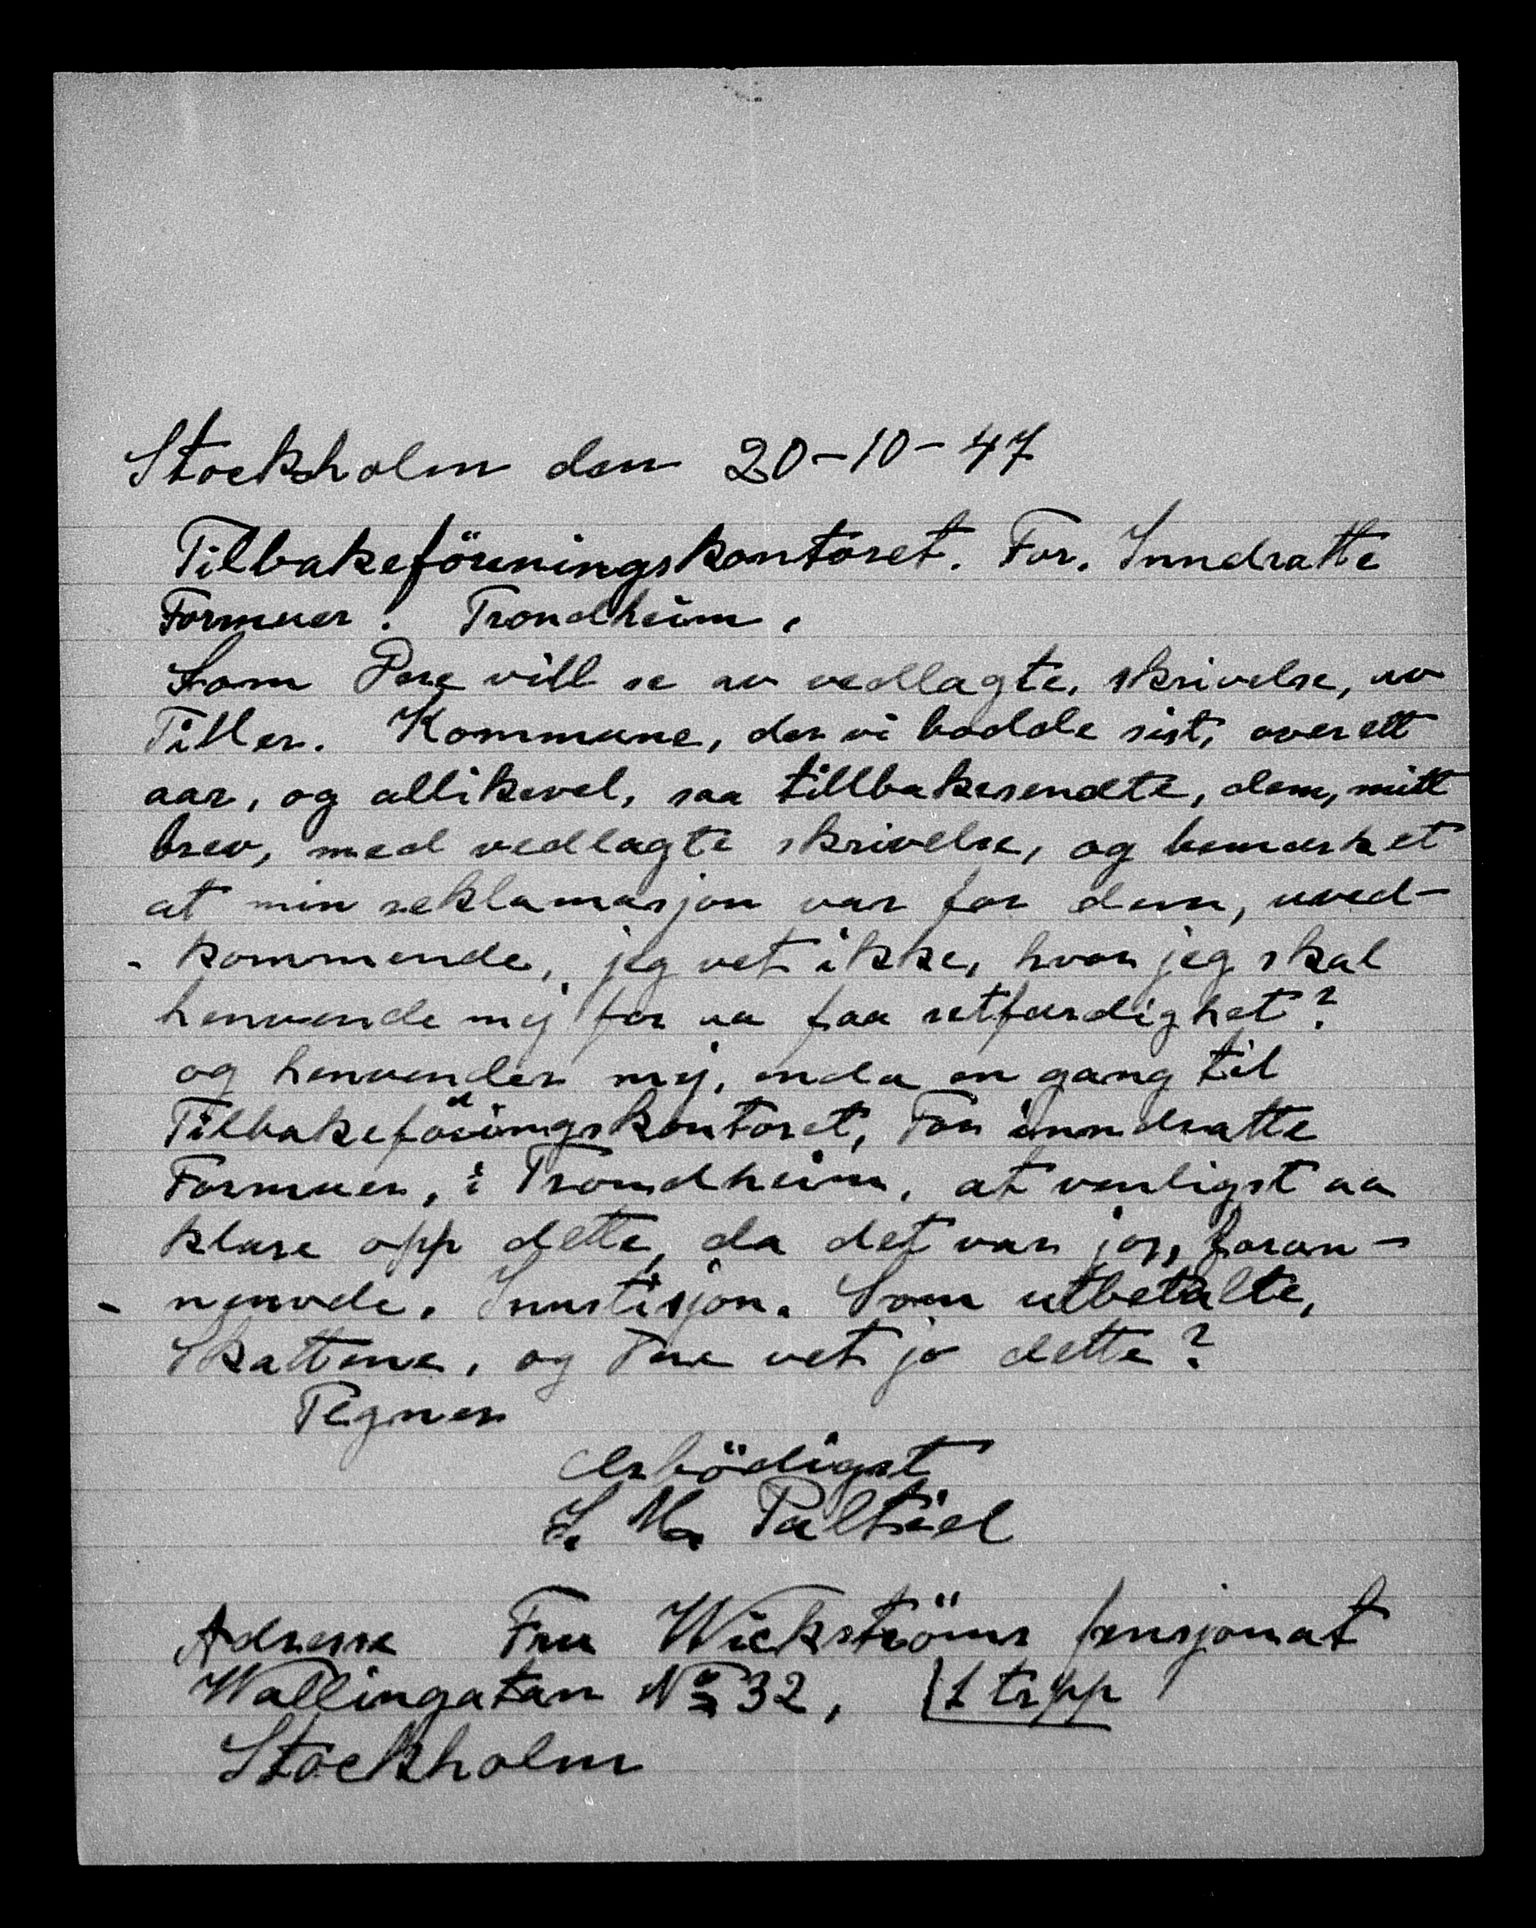 Stockholm den 20-10-47
Tilbakeföreningskontoret. For. Inndratte
Formuer. Trondheim.
Som Dere vill se av vedlagte, skrivelse, av
Tiller. Kommune, der vi bodde sist, over ett
aar, og allikevel, saa tillbakesendte, dem, mitt
brev, med vedlagte skrivelse, og bemærket
at min reklamasjon var for dem, uved-
- kommende, jeg vet ikke, hvor jeg skal
henvende mij for aa faa retfærdighet?
og henvender mij, enda en gang til
Tilbakeföringskontoret, For inndratte
Formuer, i Trondheim, at venligst aa
klare opp dette, da det var jo, foran-
- nevnde. Innstisjon. Som utbetalte,
Skattene, og Dere vet jo dette?
Tegner
Ærbödigst
S. M. Paltiel
Adresse Fru Wickströms pensjonat
Wallingatan No 32, 1 trpp
Stockholm